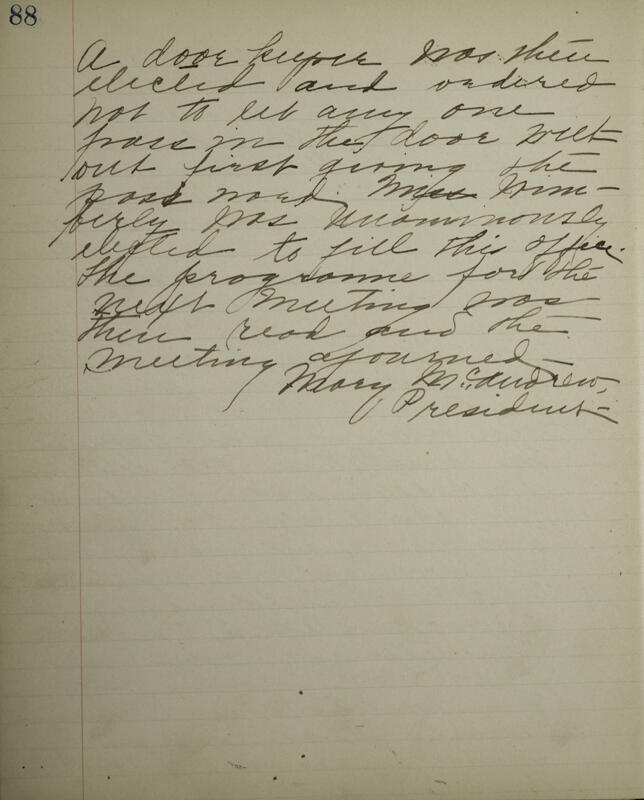 88
A door keeper was then
elected and ordered
not to let any one
pass in the door with
out first giving the
pass word. Miss Wim-
berly was unanimously
elected to fill this office.
The programme for the
next meeting was
then read and the
meeting ajourned.
Mary McAndrew,
President